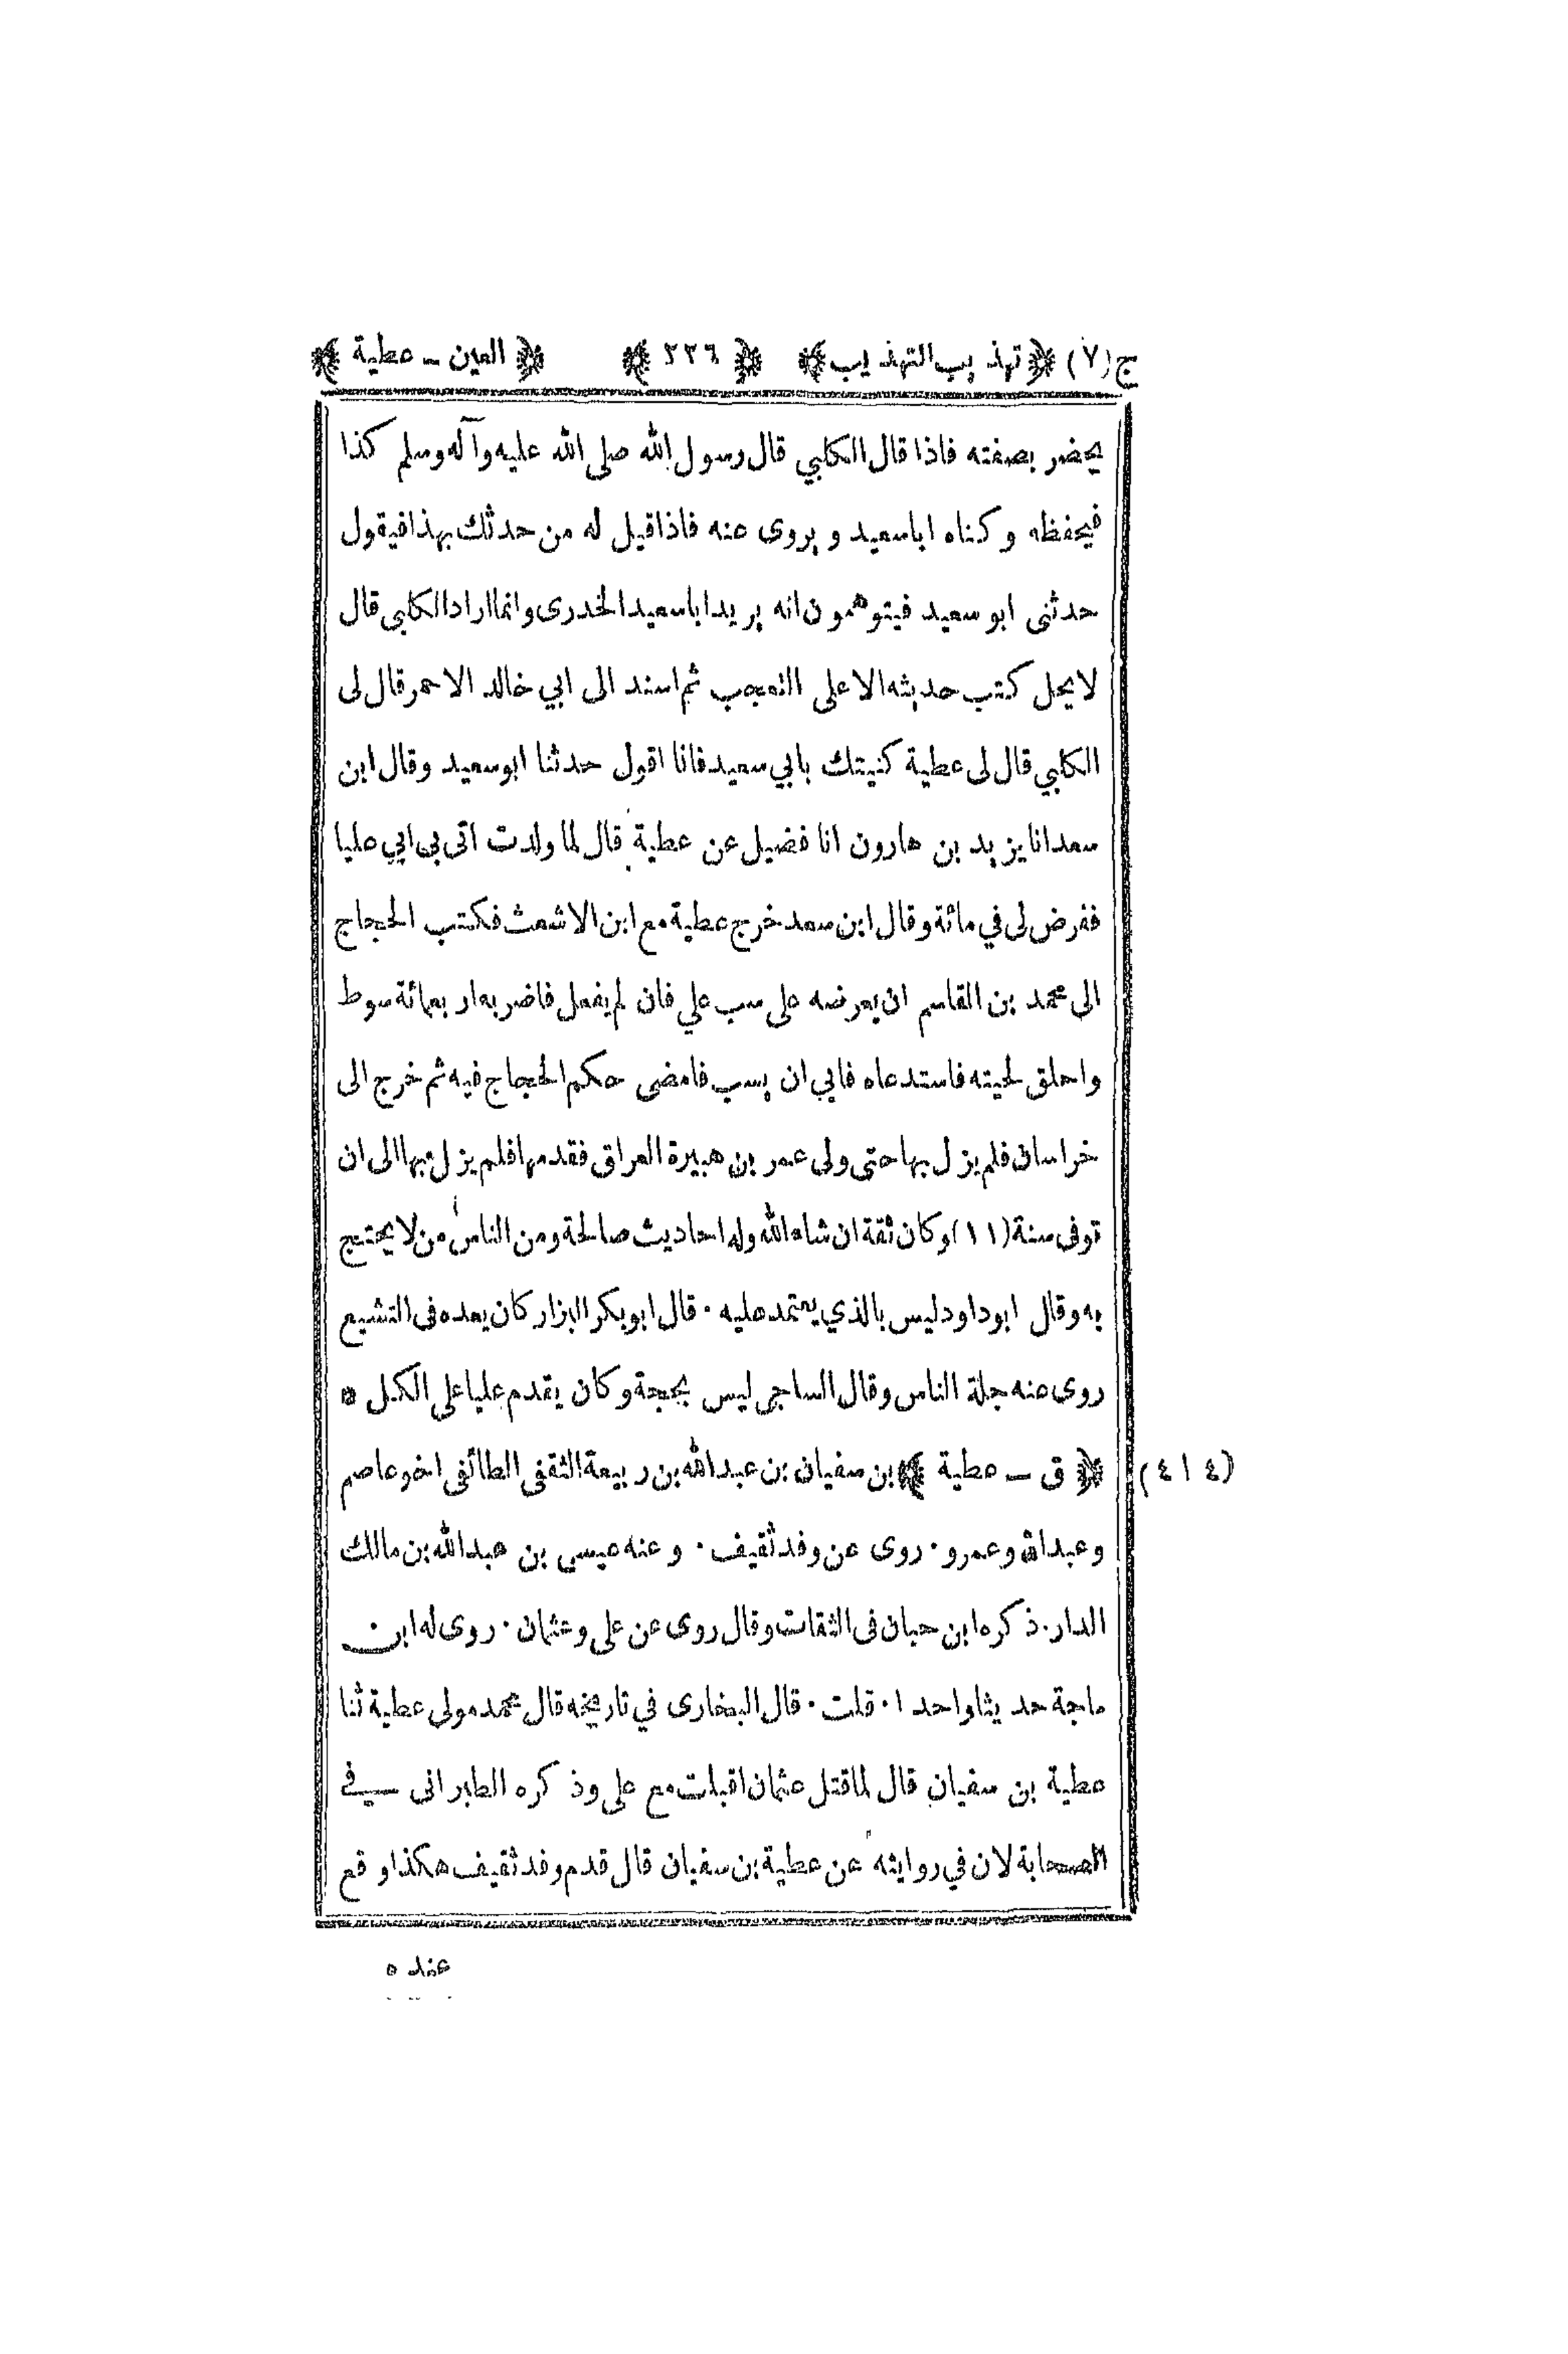 ج(٧) ﴿تهذيب التهذيب﴾ ﴿٢٢٦﴾ ﴿العين ـ عطية﴾
يحضر بصفته فاذا قال الكلبي قال رسول الله صلى الله عليه وآله وسلم كذا
فيحفظه وكناه اباسعيد ويروى عنه فاذاقيل له من حدثك بهذا فيقول
حدثنى ابو سعيد فيتوهمون انه يريد اباسعيد الخدرى وانما اراد الكلبى قال
لايحل كتب حديثه الا على التعجب ثم اسند الى ابي خالد الاحمر قال لى
الكلبي قال لى عطية كنيتك بابي سعيد فانا اقول حدثنا ابوسعيد وقال ابن
سعد انا يزيد بن هارون انا فضيل عن عطية قال لما ولدت اتى بى ابي عليا
ففرض لى في مائة وقال ابن سعد خرج عطية مع ابن الاشعث فكتب الحجاج
الى محمد بن القاسم ان يعرضه على سب علي فان لم يفعل فاضربه اربعمائة سوط
واحلق لحيته فاستدعاه فابي ان يسب فامضى حكم الحجاج فيه ثم خرج الى
خراسان فلم يزل بها حتى ولى عمر بن هبيرة العراق فقدمها فلم يزل بها الى ان
توفى سنة (١١) وكان ثقة ان شاء الله وله احاديث صالحة ومن الناس من لا يحتج
به وقال ابوداود ليس بالذي يعتمد عليه ٠ قال ابوبكر البزار كان يعده فى التشيع
روى عنه جلة الناس وقال الساجى ليس بحجة وكان يقدم عليا على الكل ٥
(٤١٤) ﴿ق ـ عطية﴾ بن سفيان بن عبدالله بن ربيعة الثقفى الطائفى اخو عاصم
وعبدالله وعمرو ٠ روى عن وفد ثقيف ٠ وعنه عيسى بن عبدالله بن مالك
الدار ٠ ذكره ابن حبان فى الثقات وقال روى عن على وعثمان ٠ روى له ابن
ماجة حديثا واحدا ٠ قلت ٠ قال البخارى في تاريخه قال محمد مولى عطية ثنا
عطية بن سفيان قال لما قتل عثمان اقبلت مع على وذكره الطبرانى في
الصحابة لان في روايته عن عطية بن سفيان قال قدم وفد ثقيف هكذا وقع
عنده